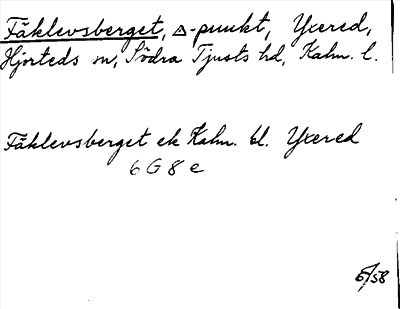 Fäklevsberget, △-punkt, Yxered,
Hjorteds sn, Södra Tjusts hd, Kalm. l.
Fäklevsberget ek Kalm. bl. Yxered
6 G 8 e
6/58